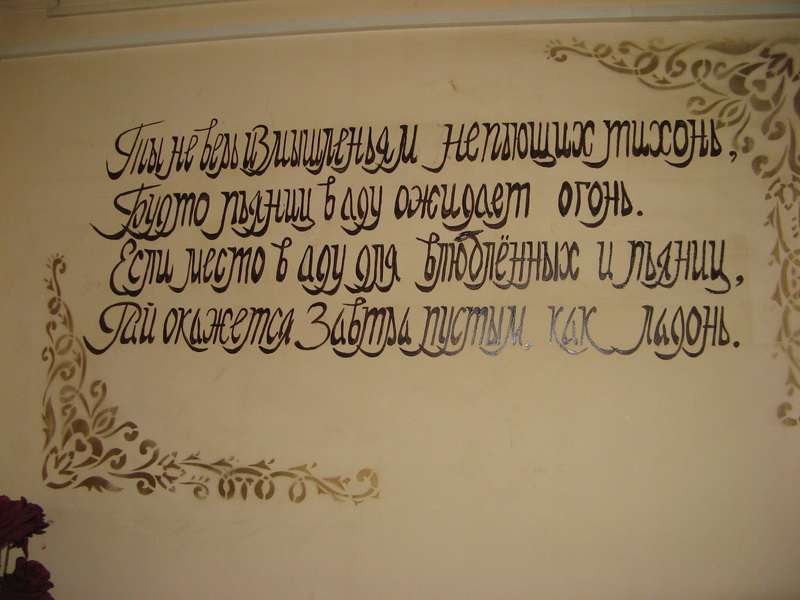 Ты не верь измышленьям непьющих тихонь,
Будто пьяниц в аду ожидает огонь.
Если место в аду для влюблённых и пьяниц,
Рай окажется завтра пустым, как ладонь.